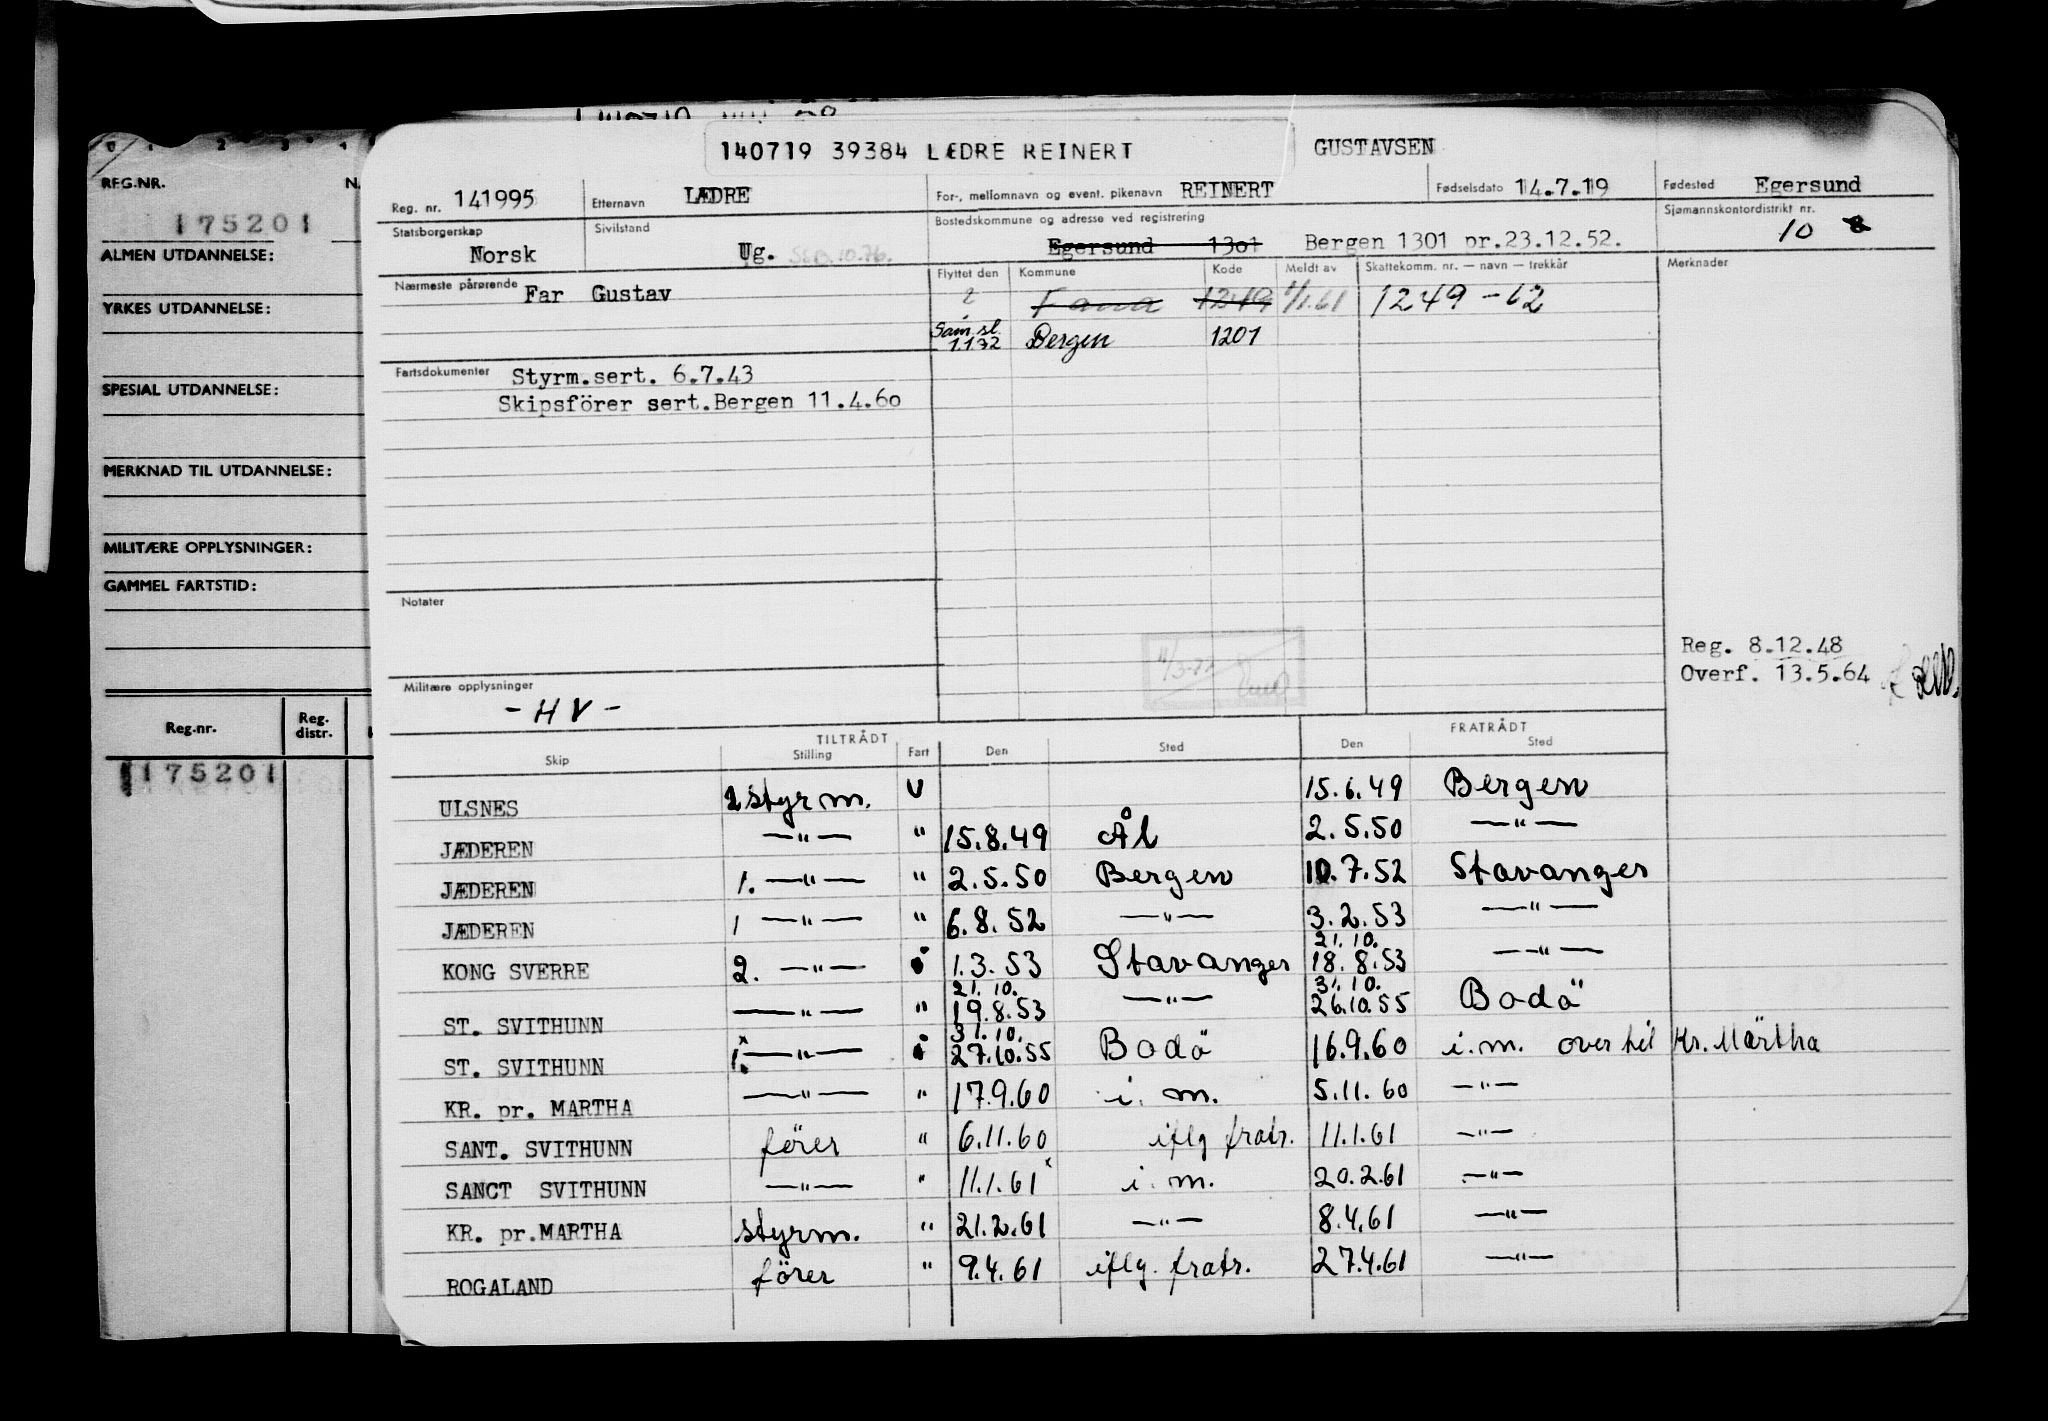 140719 39384 LÆDRE REINERT
GUSTAVSEN
Reg. nr. 141995
Etternavn LÆDRE
For-, mellomnavn og event. pikenavn REINERT
Fødselsdato 14.7.19
Fødested Egersund
Statsborgerskap Norsk
Sivilstand Ug.
Bostedskommune og adresse ved registrering
Egersund 1301 Bergen 1301 pr.23.12.52.
Sjømannskontordistrikt nr.
10
Nærmeste pårørende Far Gustav
Flyttet den Kommune Kode Meldt av Skattekomm. nr. — navn — trekkår
? Fana 1249 1/1.61 1249 - 62
Sam.sl. 1.1.72 Bergen 1201
Merknader
Fartsdokumenter Styrm.sert. 6.7.43
Skipsförer sert.Bergen 11.4.60
Notater
Reg. 8.12.48
Overf. 13.5.64
Militære opplysninger
- HV -
TILTRÅDT FRATRÅDT
Skip Stilling Fart Den Sted Den Sted
ULSNES 2 styrm. V 15.6.49 Bergen
JÆDEREN —"— " 15.8.49 Ål 2.5.50 —"—
JÆDEREN 1. —"— " 2.5.50 Bergen 10.7.52 Stavanger
JÆDEREN 1 —"— " 6.8.52 —"— 3.2.53 —"—
KONG SVERRE 2. —"— i 1.3.53 Stavanger 21.10. 18.8.53 —"—
ST. SVITHUNN —"— " 21.10. 19.8.53 —"— 31.10. 26.10.55 Bodö
ST. SVITHUNN 1. —"— i 31.10. 27.10.55 Bodö 16.9.60 i.m. over til Kr. Märtha
KR. pr. MARTHA —"— " 17.9.60 i. m. 5.11.60 —"—
SANT. SVITHUNN förer " 6.11.60 iflg fratr. 11.1.61 —"—
SANCT SVITHUNN —"— " 11.1.61 i. m. 20.2.61 —"—
KR. pr.MARTHA styrm. " 21.2.61 —"— 8.4.61 —"—
ROGALAND förer " 9.4.61 iflg. fratr. 27.4.61 —"—
REG.NR.
175201
ALMEN UTDANNELSE:
YRKES UTDANNELSE:
SPESIAL UTDANNELSE:
MERKNAD TIL UTDANNELSE:
MILITÆRE OPPLYSNINGER:
GAMMEL FARTSTID:
Reg.-nr. Reg. distr.
175201